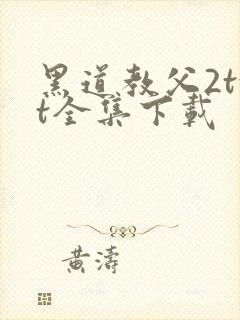 黑道教父2t
t全集下載
黄濤